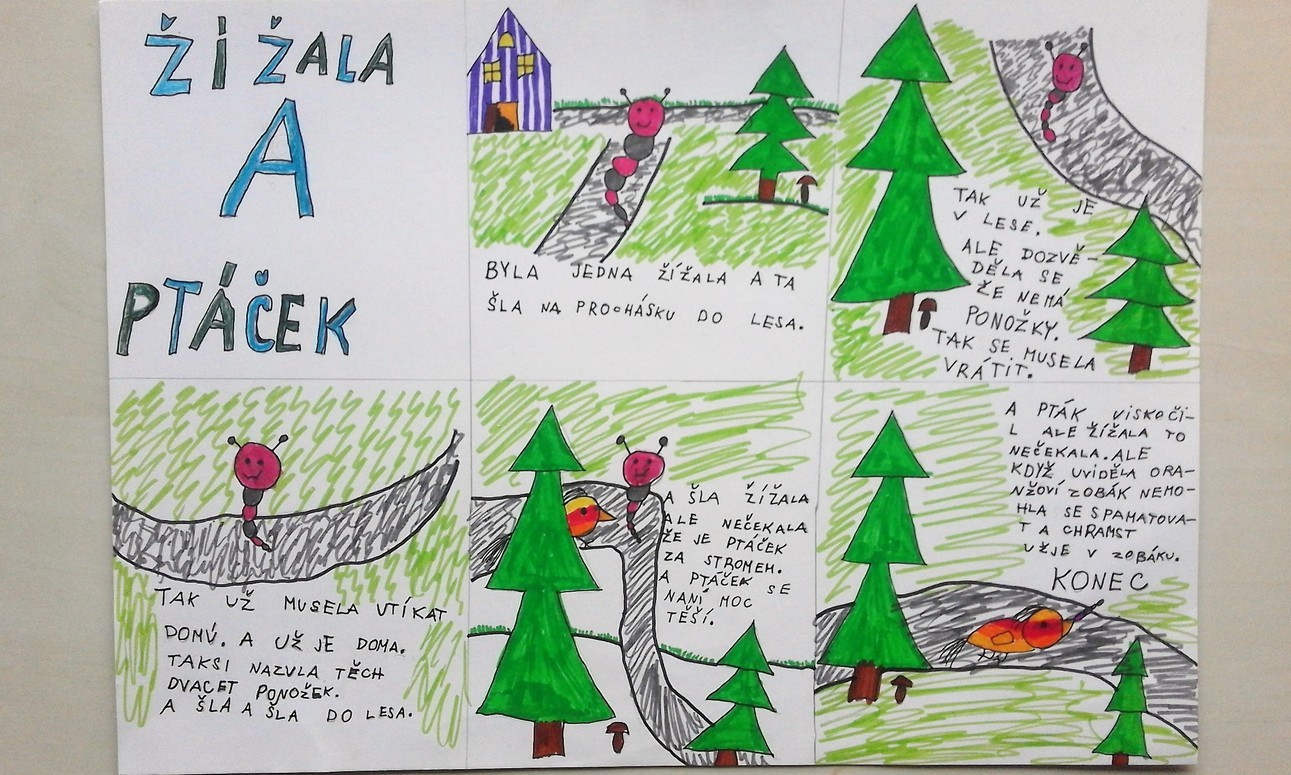 ŽÍŽALA
A
PTÁČEK
BYLA JEDNA ŽÍŽALA A TA
ŠLA NA PROCHÁSKU DO LESA.
TAK UŽ JE
V LESE.
ALE DOZVĚ-
DĚLA SE
ŽE NEMÁ
PONOŽKY.
TAK SE MUSELA
VRÁTIT.
TAK UŽ MUSELA UTÍKAT
DOMŮ. A UŽ JE DOMA.
TAKSI NAZULA TĚCH
DVACET PONOŽEK.
A ŠLA A ŠLA DO LESA.
A ŠLA ŽÍŽALA
ALE NEČEKALA
ŽE JE PTÁČEK
ZA STROMEM.
A PTÁČEK SE
NANÍ MOC
TĚŠÍ.
A PTÁK VISKOČI-
L ALE ŽÍŽALA TO
NEČEKALA. ALE
KDYŽ UVIDĚLA ORA-
NŽOVÍ ZOBÁK NEMO-
HLA SE SPAMATOVA-
T A CHRAMST
UŽJE V ZOBÁKU.
KONEC